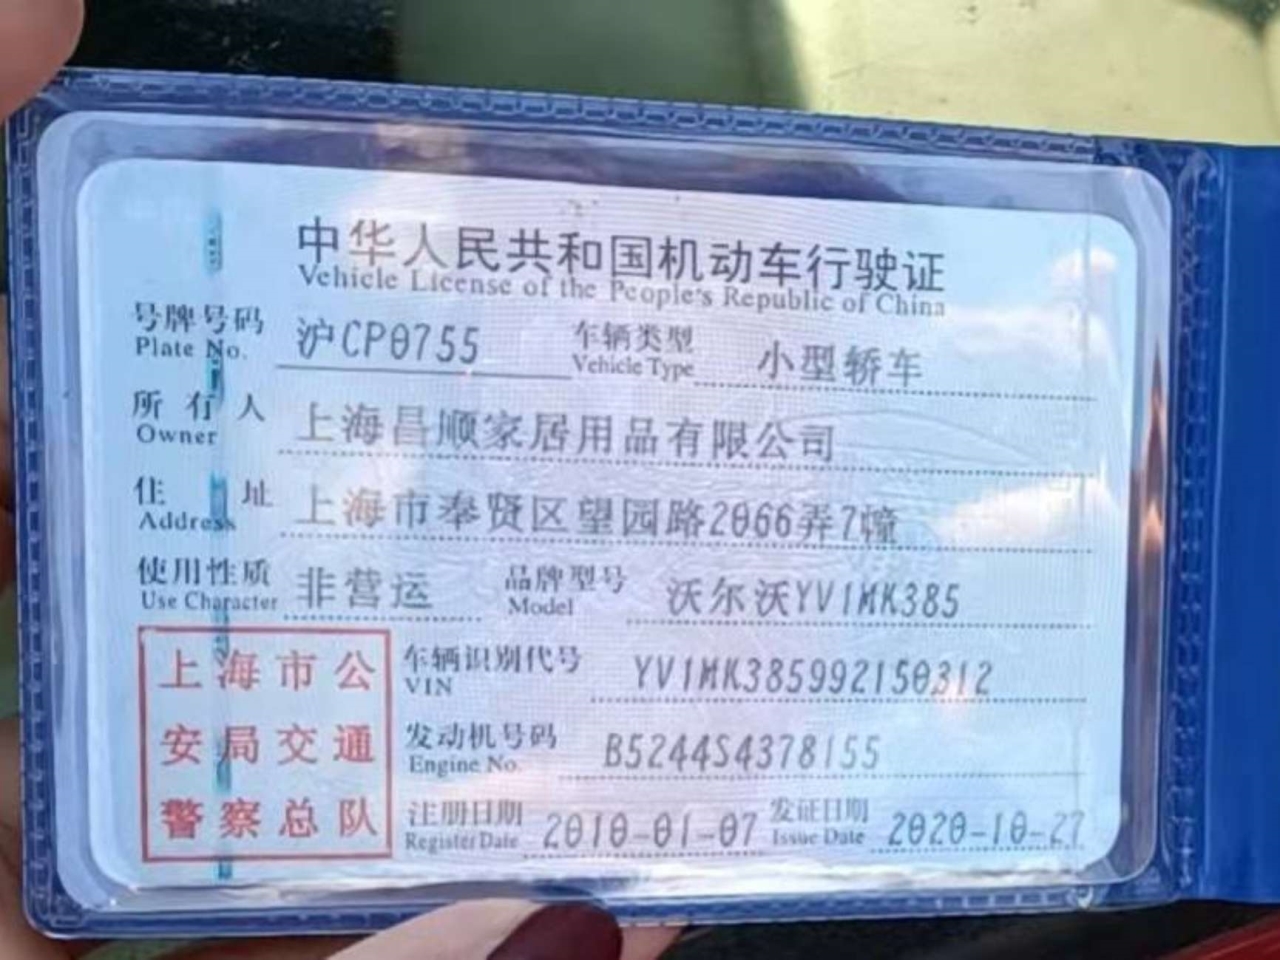 中华人民共和国机动车行驶证
Vehicle License of the People's Republic of China
号牌号码 沪CP0755 车辆类型 小型轿车
Plate No. Vehicle Type
所有人 上海昌顺家居用品有限公司
Owner
住址 上海市奉贤区望园路2066弄7幢
Address
使用性质 非营运 品牌型号 沃尔沃YV1MK385
Use Character Model
上海市公
安局交通
警察总队
车辆识别代号 YV1MK385992150312
VIN
发动机号码 B5244S4378155
Engine No.
注册日期 2010-01-07 发证日期 2020-10-27
Register Date Issue Date